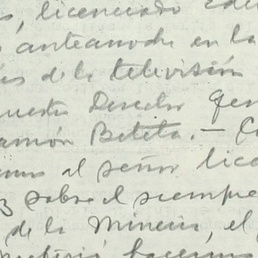 , licenciado Edu
anteanoche en la
s de la televisión
uestro Director Gen
amón Beteta. — C
al señor lice
sobre el siempre
de la Minería, el